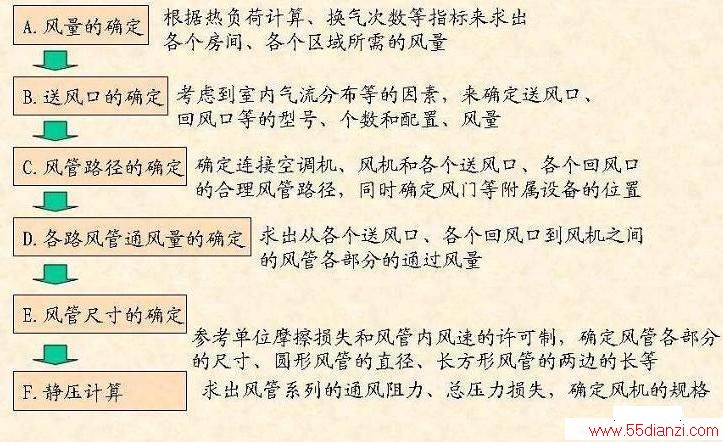 A.风量的确定
根据热负荷计算、换气次数等指标来求出
各个房间、各个区域所需的风量
B.送风口的确定
考虑到室内气流分布等的因素，来确定送风口、
回风口等的型号、个数和配置、风量
C.风管路径的确定
确定连接空调机、风机和各个送风口、各个回风口
的合理风管路径，同时确定风门等附属设备的位置
D.各路风管通风量的确定
求出从各个送风口、各个回风口到风机之间
的风管各部分的通过风量
E.风管尺寸的确定
参考单位摩擦损失和风管内风速的许可制，确定风管各部分
的尺寸、圆形风管的直径、长方形风管的两边的长等
F.静压计算
求出风管系列的通风阻力、总压力损失，确定风机的规格
www.55dianzi.com